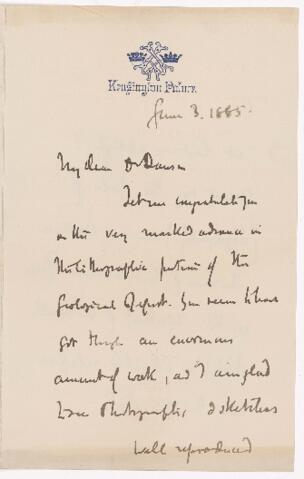 Kensington Palace
June 3. 1885.
My dear Dr Dawson
Let me congratulate you
on the very marked advance in
the lithographic pictures of the
Geological Report. You seem to have
got through an enormous
amount of work, and I am glad
to see Photographs, & sketches
well reproduced